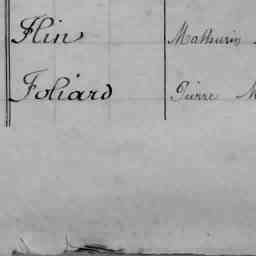 Flin Mathurin
Foliard Pierre M